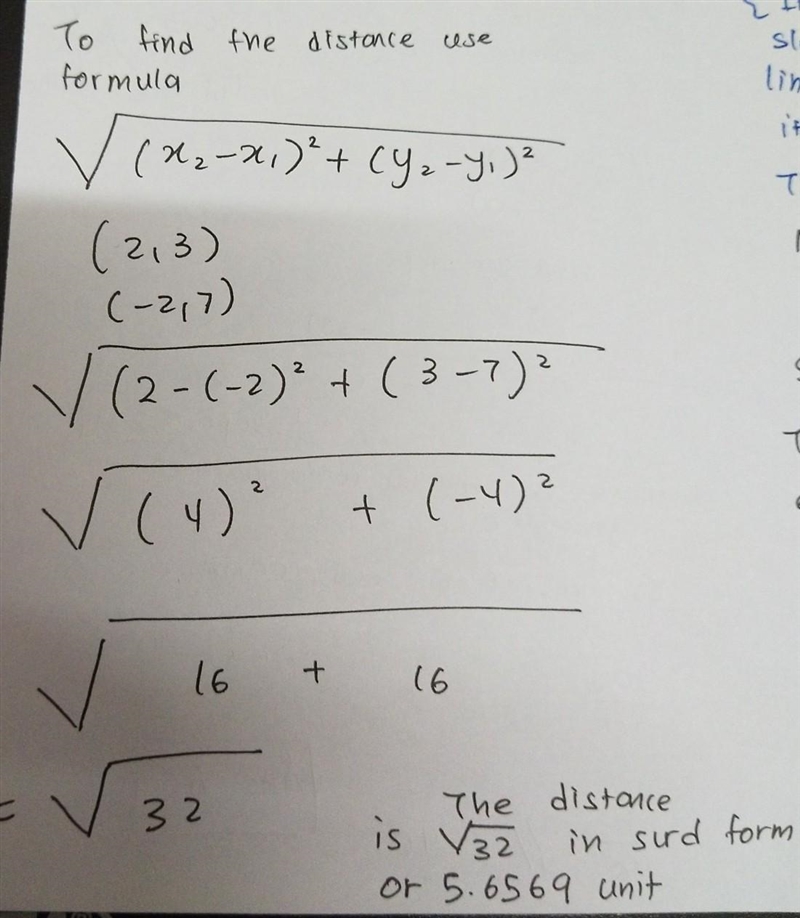 To find the distance use
formula
√(x₂-x₁)²+(y₂-y₁)²
(2,3)
(-2,7)
√(2-(-2)² + (3-7)²
√(4)² + (-4)²
√16 + 16
= √32
The distance
is √32 in surd form
or 5.6569 unit